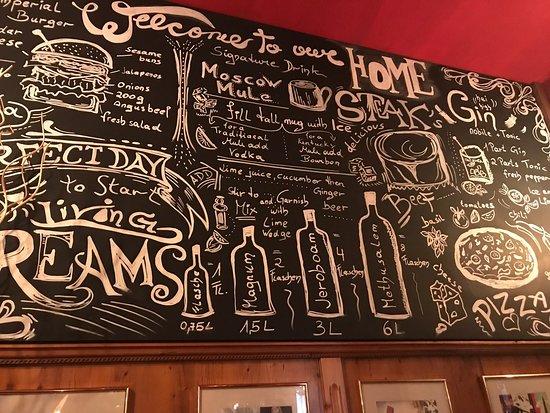 Imperial
Burger
Sesame
buns
Jalapeños
Onions
200g
Angus beef
fresh salad
Welcome to our
HOME
STEAK's
Signature Drink
Moscow
Mule
Fill tall mug with Ice
For a
Traditional
Mule add
Vodka
For a
Kentucky
Mule add
Bourbon
lime juice, cucumber then
Ginger
beer
Stir to
Mix
and Garnish
with
Lime
Wedge
delicious
BEEF
Gin
1 Part Gin
2 Parts Tonic
fresh pepper
tomatoes
Chili
basil
Cheese
PIZZA
RFECT DAY
to Star
Living
REAMS
Flasche
0,75 L
1
Fl.
Magnum
1,5 L
= 2
Flaschen
Jeroboam
3 L
= 4
Flaschen
Methusalem
6 L
= 8
Flaschen